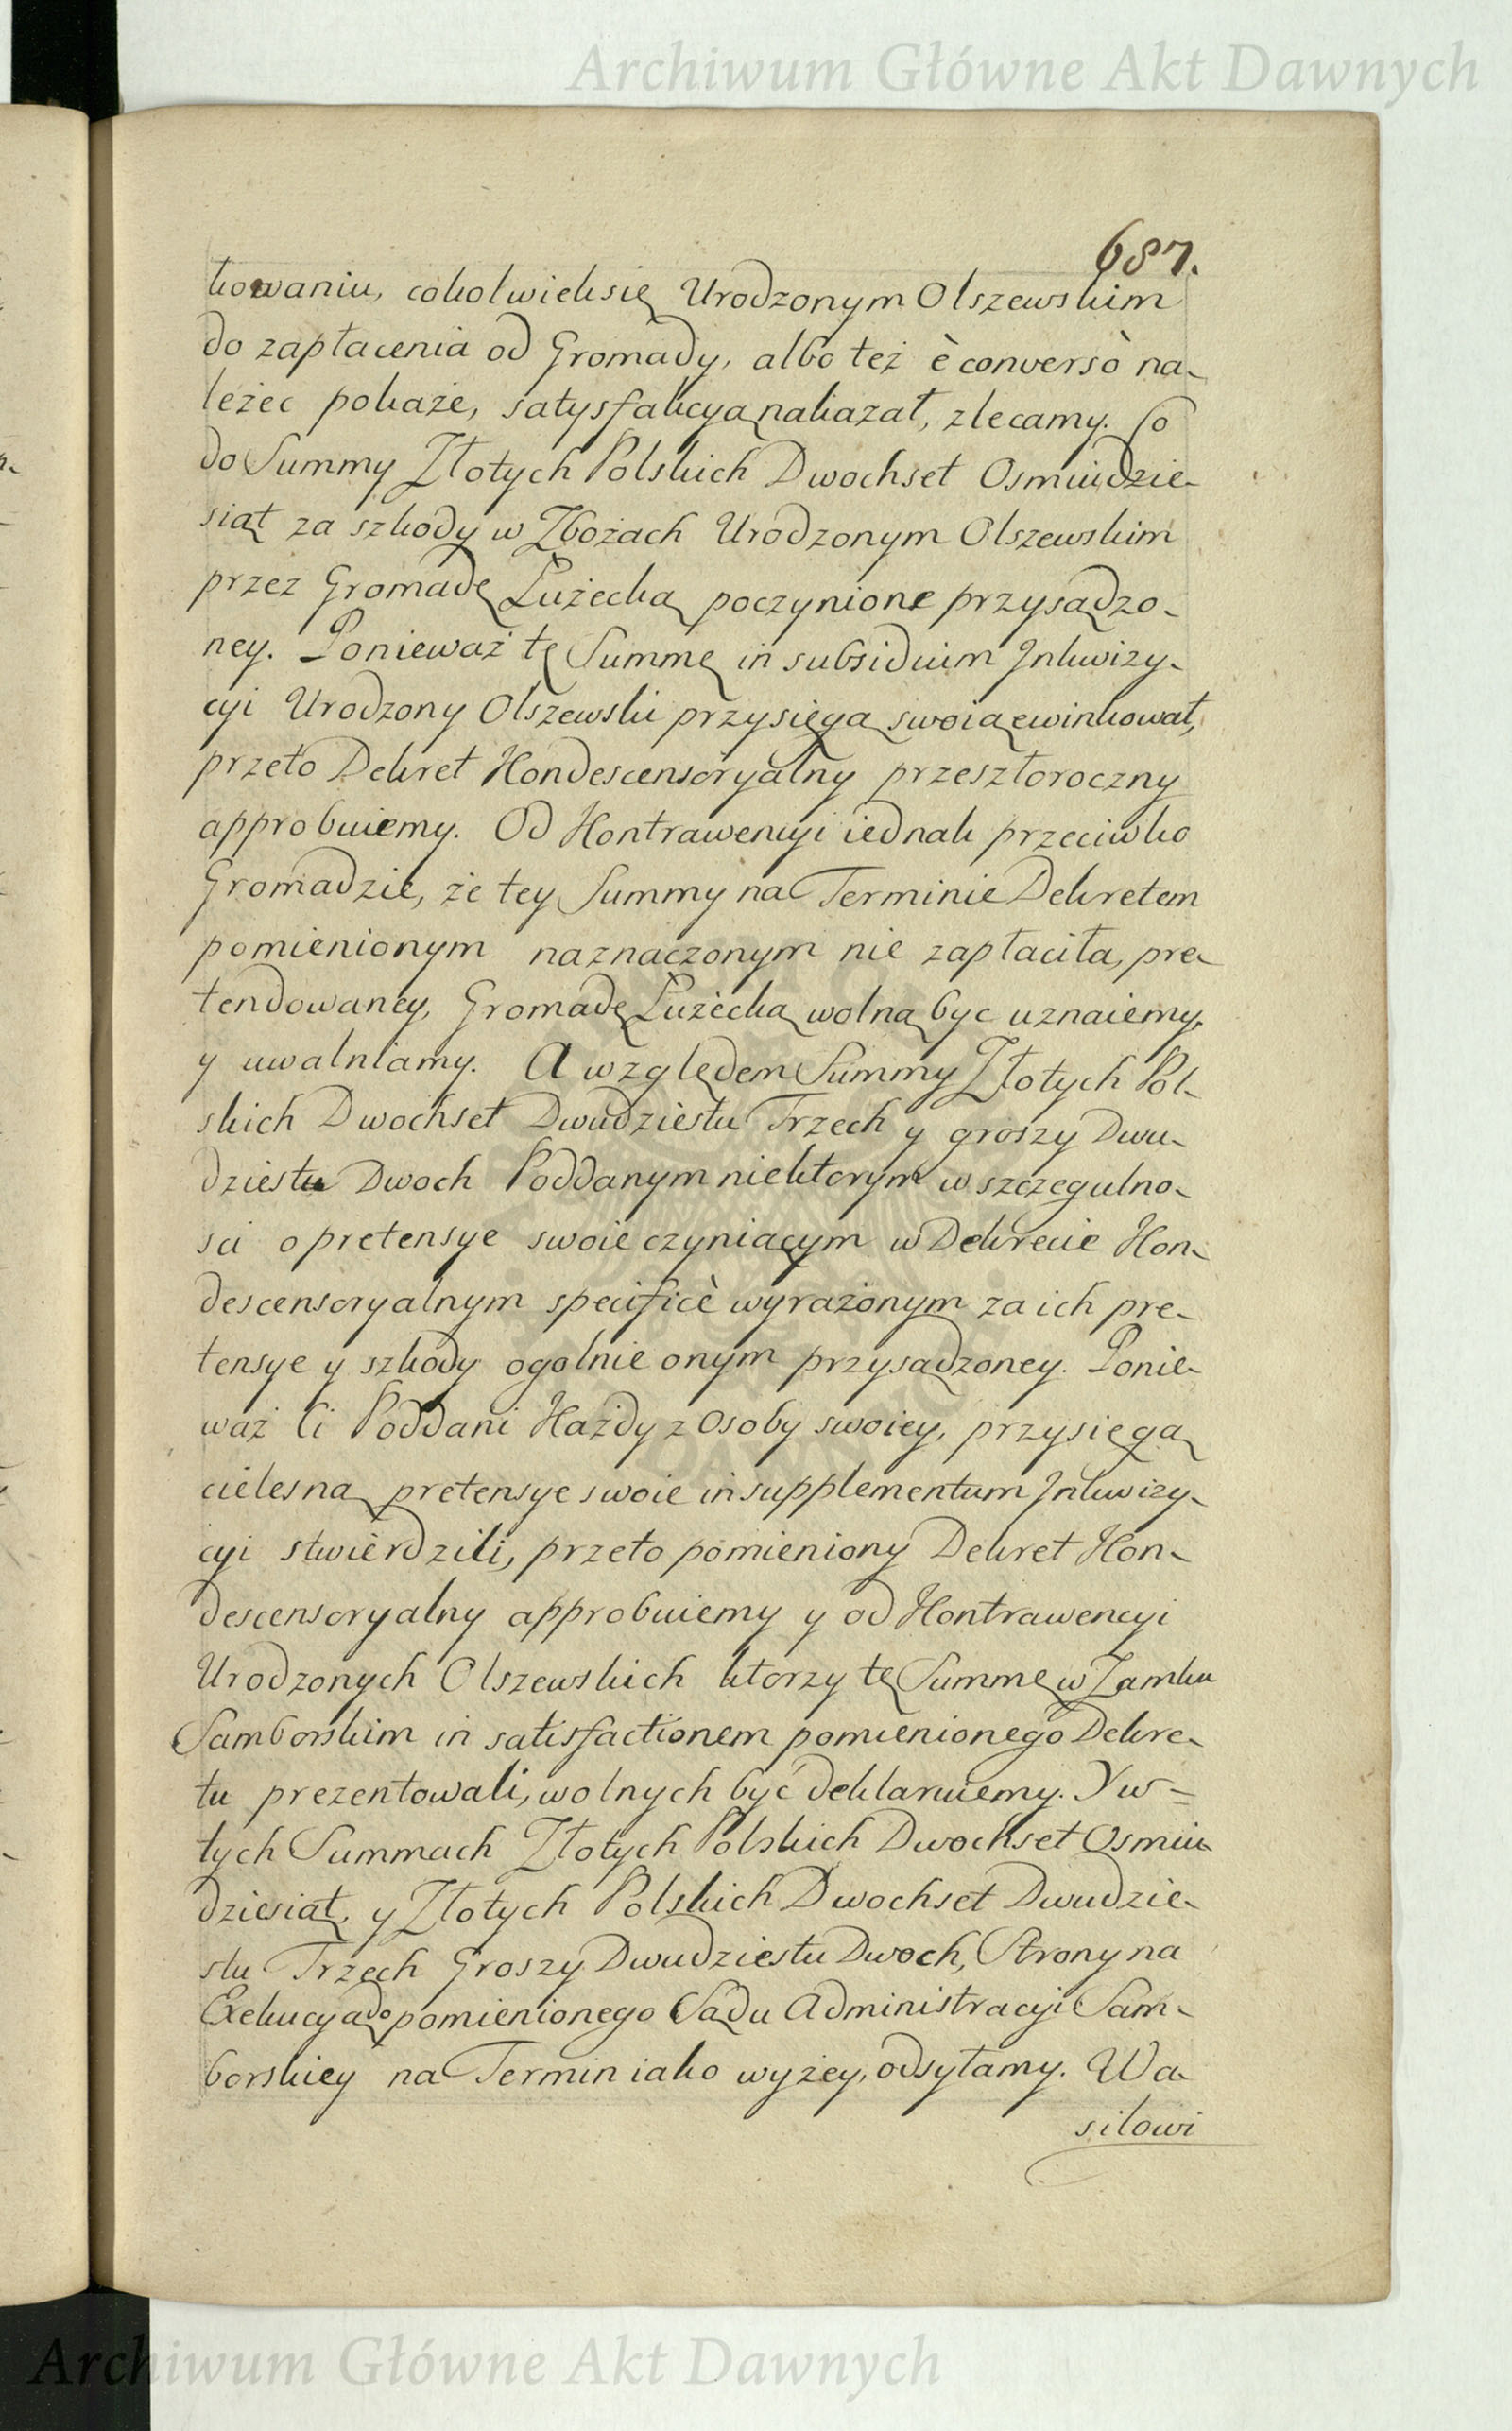 Archiwum Główne Akt Dawnych
687.
kowaniu, cokolwiek się Urodzonym Olszewskim
do zapłacenia od Gromady, albo też è conversò na-
leżec pokaże, satysfakcyą nakazał, zlecamy. Co
do Summy Złotych Polskich Dwochset Osmiudzie-
siąt za szkody w Zbożach Urodzonym Olszewskim
przez Gromadę Łużecką poczynione przysądzo-
ney. Ponieważ tę Summę in subsidium Inkwizy-
cyi Urodzony Olszewski przysięgą swoią ewinkował,
przeto Dekret Kondescensoryalny przeszłoroczny
approbuiemy. Od Kontrawencyi iednak przeciwko
Gromadzie, że tey Summy na Terminie Dekretem
pomienionym naznaczonym nie zapłaciła, pre-
tendowaney, Gromadę Łużecką wolną byc uznaiemy,
y uwalniamy. A względem Summy Złotych Pol-
skich Dwochset Dwudziestu Trzech y groszy Dwu-
dziestu Dwoch Poddanym niektorym w szczegulno-
sci o pretensye swoie czyniącym w Dekrecie Kon-
descensoryalnym specificè wyrażonym za ich pre-
tensye y szkody ogolnie onym przysądzoney. Ponie-
waż Ci Poddani Każdy z Osoby swoiey, przysięgą
cielesną pretensye swoie in supplementum Inkwizy-
cyi stwierdzili, przeto pomieniony Dekret Kon-
descensoryalny approbuiemy y od Kontrawencyi
Urodzonych Olszewskich ktorzy tę Summę w Zamku
Samborskim in satisfactionem pomienionego Dekre-
tu prezentowali, wolnych być deklaruiemy. Y w-
tych Summach Złotych Polskich Dwochset Osmiu
dziesiąt, y Złotych Polskich Dwochset Dwudzie-
stu Trzech Groszy Dwudziestu Dwoch, Strony na
Exekucyą do pomienionego Sądu Administracyi Sam-
borskiey na Termin iako wyżey, odsyłamy. Wa-
silowi
Archiwum Główne Akt Dawnych